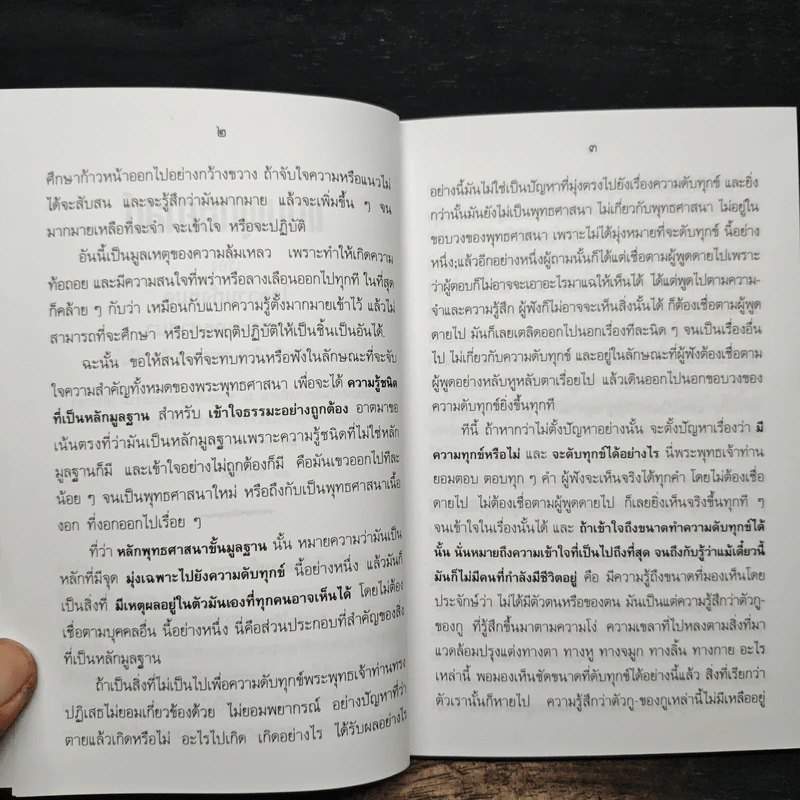 ๒
ศึกษาก้าวหน้าออกไปอย่างกว้างขวาง ถ้าจับใจความหรือแนวไม่
ได้จะสับสน และจะรู้สึกว่ามันมากมาย แล้วจะเพิ่มขึ้น ๆ จน
มากมายเหลือที่จะจำ จะเข้าใจ หรือจะปฏิบัติ
อันนี้เป็นมูลเหตุของความล้มเหลว เพราะทำให้เกิดความ
ท้อถอย และมีความสนใจที่พร่าหรือลางเลือนออกไปทุกที ในที่สุด
ก็คล้าย ๆ กับว่า เหมือนกับแบกความรู้ตั้งมากมายเข้าไว้ แล้วไม่
สามารถที่จะศึกษา หรือประพฤติปฏิบัติให้เป็นชิ้นเป็นอันได้.
ฉะนั้น ขอให้สนใจที่จะทบทวนหรือฟังในลักษณะที่จะจับ
ใจความสำคัญทั้งหมดของพระพุทธศาสนา เพื่อจะได้ ความรู้ชนิด
ที่เป็นหลักมูลฐาน สำหรับ เข้าใจธรรมะอย่างถูกต้อง อาตมาขอ
เน้นตรงที่ว่ามันเป็นหลักมูลฐานเพราะความรู้ชนิดที่ไม่ใช่หลัก
มูลฐานก็มี และเข้าใจอย่างไม่ถูกต้องก็มี คือมันเขวออกไปทีละ
น้อย ๆ จนเป็นพุทธศาสนาใหม่ หรือถึงกับเป็นพุทธศาสนาเนื้อ
งอก ที่งอกออกไปเรื่อย ๆ
ที่ว่า หลักพุทธศาสนาขั้นมูลฐาน นั้น หมายความว่ามันเป็น
หลักที่มีจุด มุ่งเฉพาะไปยังความดับทุกข์ นี้อย่างหนึ่ง แล้วมันก็
เป็นสิ่งที่ มีเหตุผลอยู่ในตัวมันเองที่ทุกคนอาจเห็นได้ โดยไม่ต้อง
เชื่อตามบุคคลอื่น นี้อย่างหนึ่ง นี่คือส่วนประกอบที่สำคัญของสิ่ง
ที่เป็นหลักมูลฐาน
ถ้าเป็นสิ่งที่ไม่เป็นไปเพื่อความดับทุกข์พระพุทธเจ้าท่านทรง
ปฏิเสธไม่ยอมเกี่ยวข้องด้วย ไม่ยอมพยากรณ์ อย่างปัญหาที่ว่า
ตายแล้วเกิดหรือไม่ อะไรไปเกิด เกิดอย่างไร ได้รับผลอย่างไร
๓
อย่างนี้มันไม่ใช่เป็นปัญหาที่มุ่งตรงไปยังเรื่องความดับทุกข์ และยิ่ง
กว่านั้นมันยังไม่เป็นพุทธศาสนา ไม่เกี่ยวกับพุทธศาสนา ไม่อยู่ใน
ขอบวงของพุทธศาสนา เพราะไม่ได้มุ่งหมายที่จะดับทุกข์ นี้อย่าง
หนึ่ง;แล้วอีกอย่างหนึ่งผู้ถามนั้นก็ได้แต่เชื่อตามผู้พูดดายไปเพราะ
ว่าผู้ตอบก็ไม่อาจจะเอาอะไรมาแฉให้เห็นได้ ได้แต่พูดไปตามความ-
จำและความรู้สึก ผู้ฟังก็ไม่อาจจะเห็นสิ่งนั้นได้ ก็ต้องเชื่อตามผู้พูด
ดายไป มันก็เลยเตลิดออกไปนอกเรื่องทีละนิด ๆ จนเป็นเรื่องอื่น
ไป ไม่เกี่ยวกับความดับทุกข์ และอยู่ในลักษณะที่ผู้ฟังต้องเชื่อตาม
ผู้พูดอย่างหลับหูหลับตาเรื่อยไป แล้วเดินออกไปนอกขอบวงของ
ความดับทุกข์ยิ่งขึ้นทุกที
ทีนี้ ถ้าหากว่าไม่ตั้งปัญหาอย่างนั้น จะตั้งปัญหาเรื่องว่า มี
ความทุกข์หรือไม่ และ จะดับทุกข์ได้อย่างไร นี่พระพุทธเจ้าท่าน
ยอมตอบ ตอบทุก ๆ คำ ผู้ฟังจะเห็นจริงได้ทุกคำ โดยไม่ต้องเชื่อ
ดายไป ไม่ต้องเชื่อตามผู้พูดดายไป ก็เลยยิ่งเห็นจริงขึ้นทุกที ๆ
จนเข้าใจในเรื่องนั้นได้ และ ถ้าเข้าใจถึงขนาดทำความดับทุกข์ได้
นั้น นั่นหมายถึงความเข้าใจที่เป็นไปถึงที่สุด จนถึงกับรู้ว่าแม้เดี๋ยวนี้
มันก็ไม่มีคนที่กำลังมีชีวิตอยู่ คือ มีความรู้ถึงขนาดที่มองเห็นโดย
ประจักษ์ว่า ไม่ได้มีตัวตนหรือของตน มันเป็นแต่ความรู้สึกว่าตัวกู-
ของกู ที่รู้สึกขึ้นมาตามความโง่ ความเขลาที่ไปหลงตามสิ่งที่มา
แวดล้อมปรุงแต่งทางตา ทางหู ทางจมูก ทางลิ้น ทางกาย อะไร
เหล่านี้ พอมองเห็นชัดขนาดที่ดับทุกข์ได้อย่างนี้แล้ว สิ่งที่เรียกว่า
ตัวเรานั้นก็หายไป ความรู้สึกว่าตัวกู-ของกูเหล่านี้ไม่มีเหลืออยู่